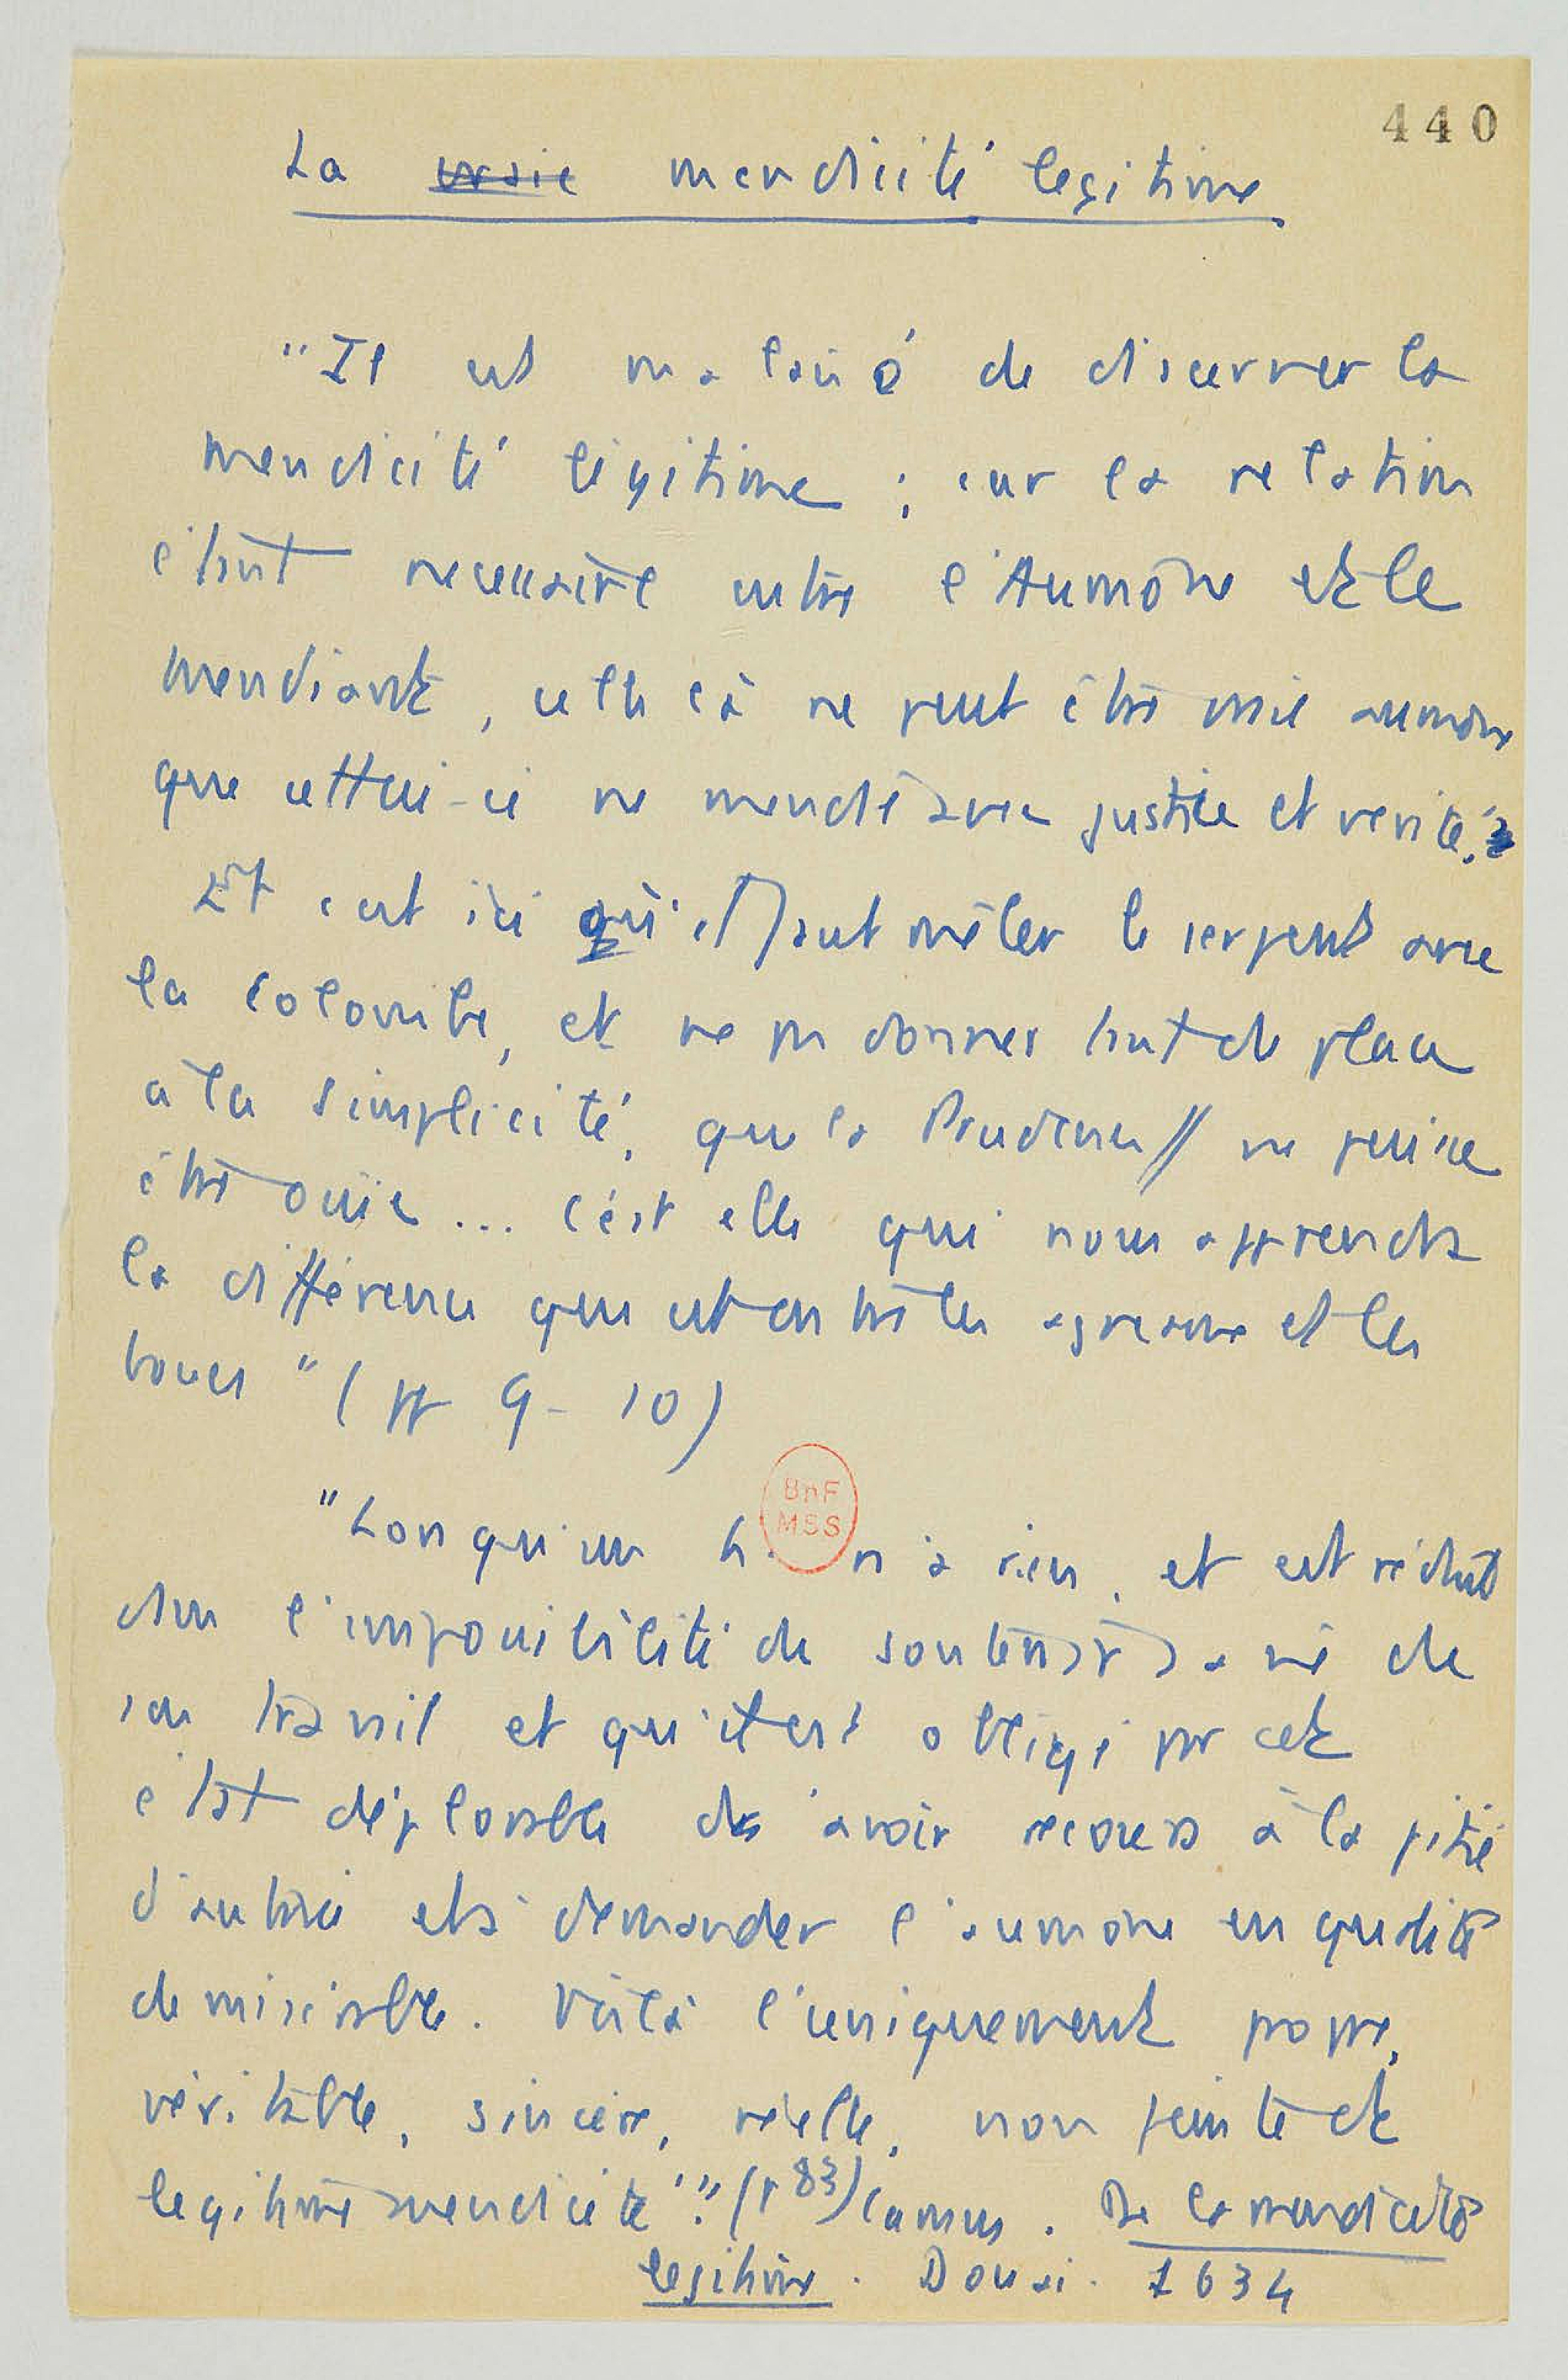 440
La vraie mendicité legitime.
"Il est malaisé de discerner la
mendicité légitime ; car la relation
étant necessaire entre l'Aumône et le
mendiant, celle là ne peut être vraie aumone
que cettui-ci ne mendie avec justice et verité.
Et c'est ici qu'il faut mêler le serpent avec
la colombe, et ne pas donner tant de place
à la simplicité, que la Prudence // ne puisse
être ouïe ... c'est elle qui nous apprend
la différence qui est entre les agneaux et les
boucs" (pp 9-10)
BnF
MSS
"Lorsqu'un h. n'a rien, et est réduit
dans l'impossibilité de soutenir sa vie de
son travail et qu'il est obligé par cet
état déplorable d'avoir recours à la pitié
d'autrui et à demander l'aumone en qualité
de misérable. Voilà l'uniquement propre,
véritable, sincère, réelle, non feinte et
legitime mendicité". (p 83) Camus. De la mendicité
legitime. Douai. 1634